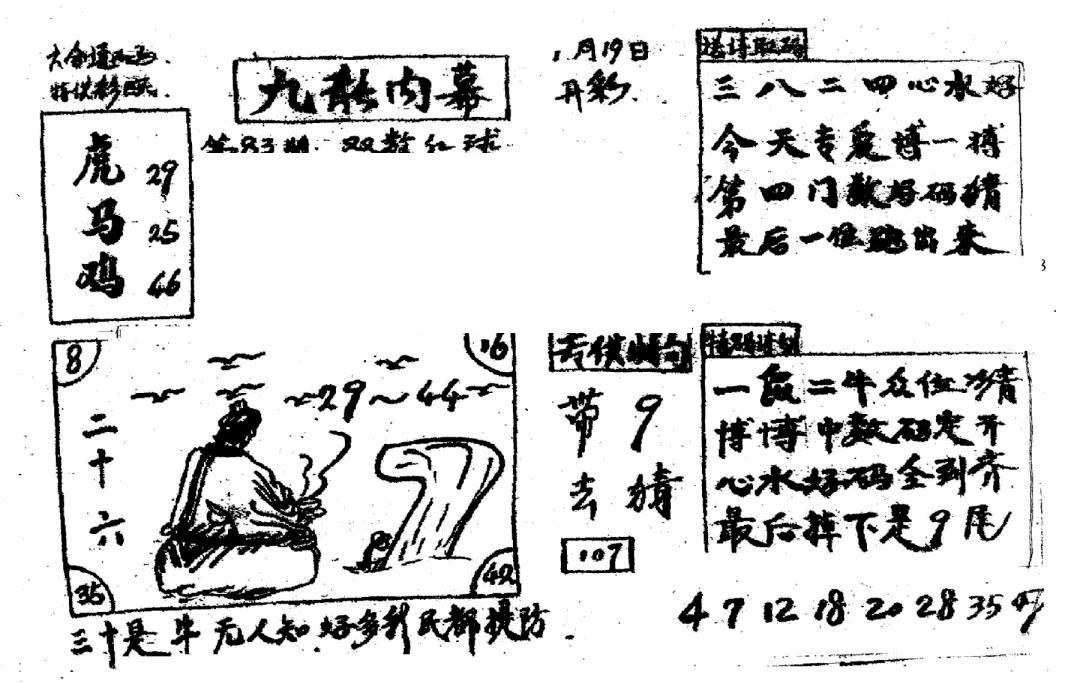 九龙内幕
第83期 双数红球
1月19日
开彩
虎 29
马 25
鸡 46
三八二四心水好
今天专爱博一搏
第四门数好码猜
最后一位跑出来
8
16
29～44
二十六
35
42
三十是牛无人知 好多彩民都提防
专供猜句
带9
去猜
107
一鼠二牛众位猜
博博中数码定开
心水好码全到齐
最后掉下是9尾
4 7 12 18 20 28 35